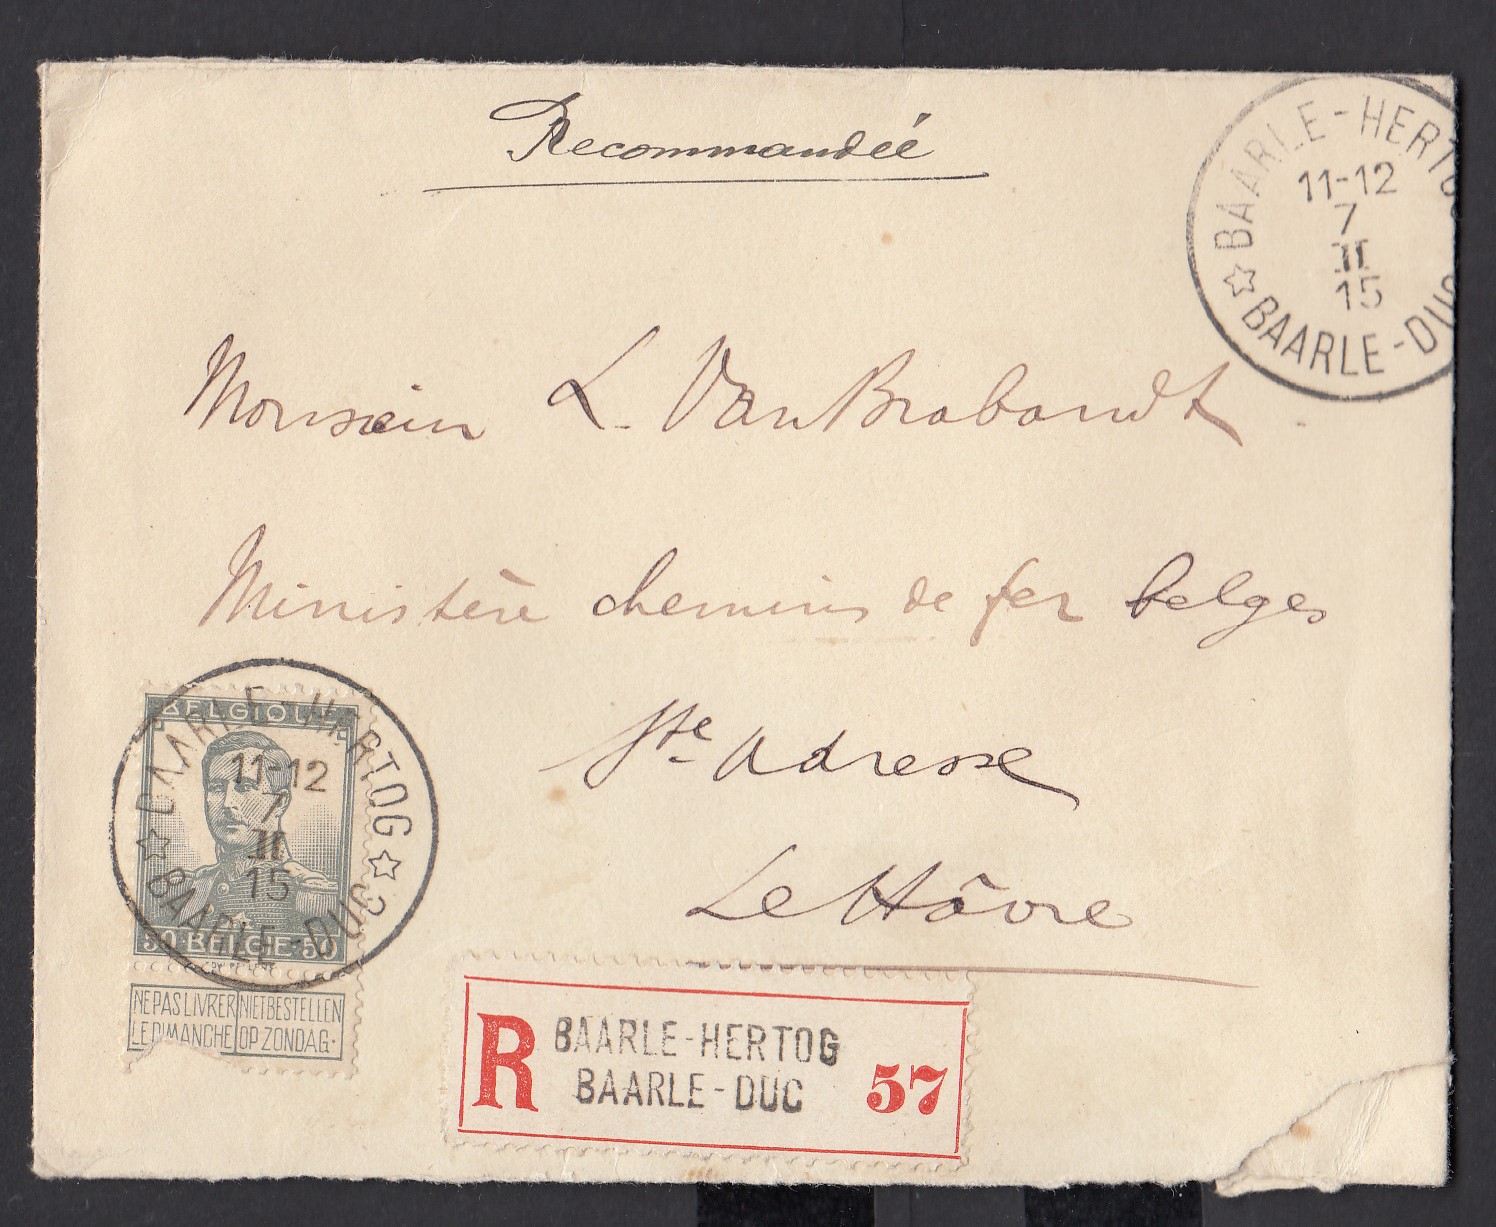 Recommandée
BAARLE-HERTOG
11-12
7
II
15
BAARLE-DUC
Monsieur L. Van Brabandt
Ministère chemins de fer belges
Ste Adresse
Le Hâvre
BELGIQUE
50 BELGIE 50
NE PAS LIVRER NIET BESTELLEN
LE DIMANCHE OP ZONDAG.
BAARLE-HERTOG
11-12
7
II
15
BAARLE-DUC 2
R BAARLE-HERTOG
BAARLE-DUC 57